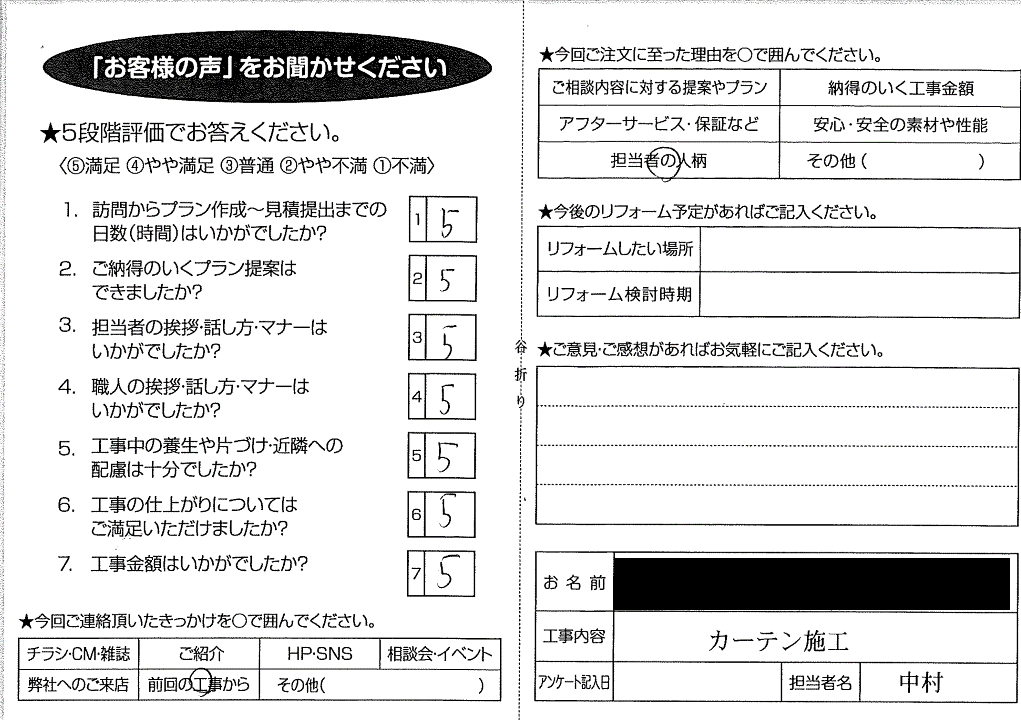 「お客様の声」をお聞かせください
★5段階評価でお答えください。
〈⑤満足 ④やや満足 ③普通 ②やや不満 ①不満〉
1. 訪問からプラン作成～見積提出までの
日数(時間)はいかがでしたか?
1 5
2. ご納得のいくプラン提案は
できましたか?
2 5
3. 担当者の挨拶・話し方・マナーは
いかがでしたか?
3 5
4. 職人の挨拶・話し方・マナーは
いかがでしたか?
4 5
5. 工事中の養生や片づけ・近隣への
配慮は十分でしたか?
5 5
6. 工事の仕上がりについては
ご満足いただけましたか?
6 5
7. 工事金額はいかがでしたか?
7 5
★今回ご連絡頂いたきっかけを〇で囲んでください。
チラシ・CM・雑誌 ご紹介 HP・SNS 相談会・イベント
弊社へのご来店 前回の工事から その他( )
谷折り
★今回ご注文に至った理由を〇で囲んでください。
ご相談内容に対する提案やプラン 納得のいく工事金額
アフターサービス・保証など 安心・安全の素材や性能
担当者の人柄 その他( )
★今後のリフォーム予定があればご記入ください。
リフォームしたい場所
リフォーム検討時期
★ご意見・ご感想があればお気軽にご記入ください。
お名前
工事内容 カーテン施工
アンケート記入日 担当者名 中村